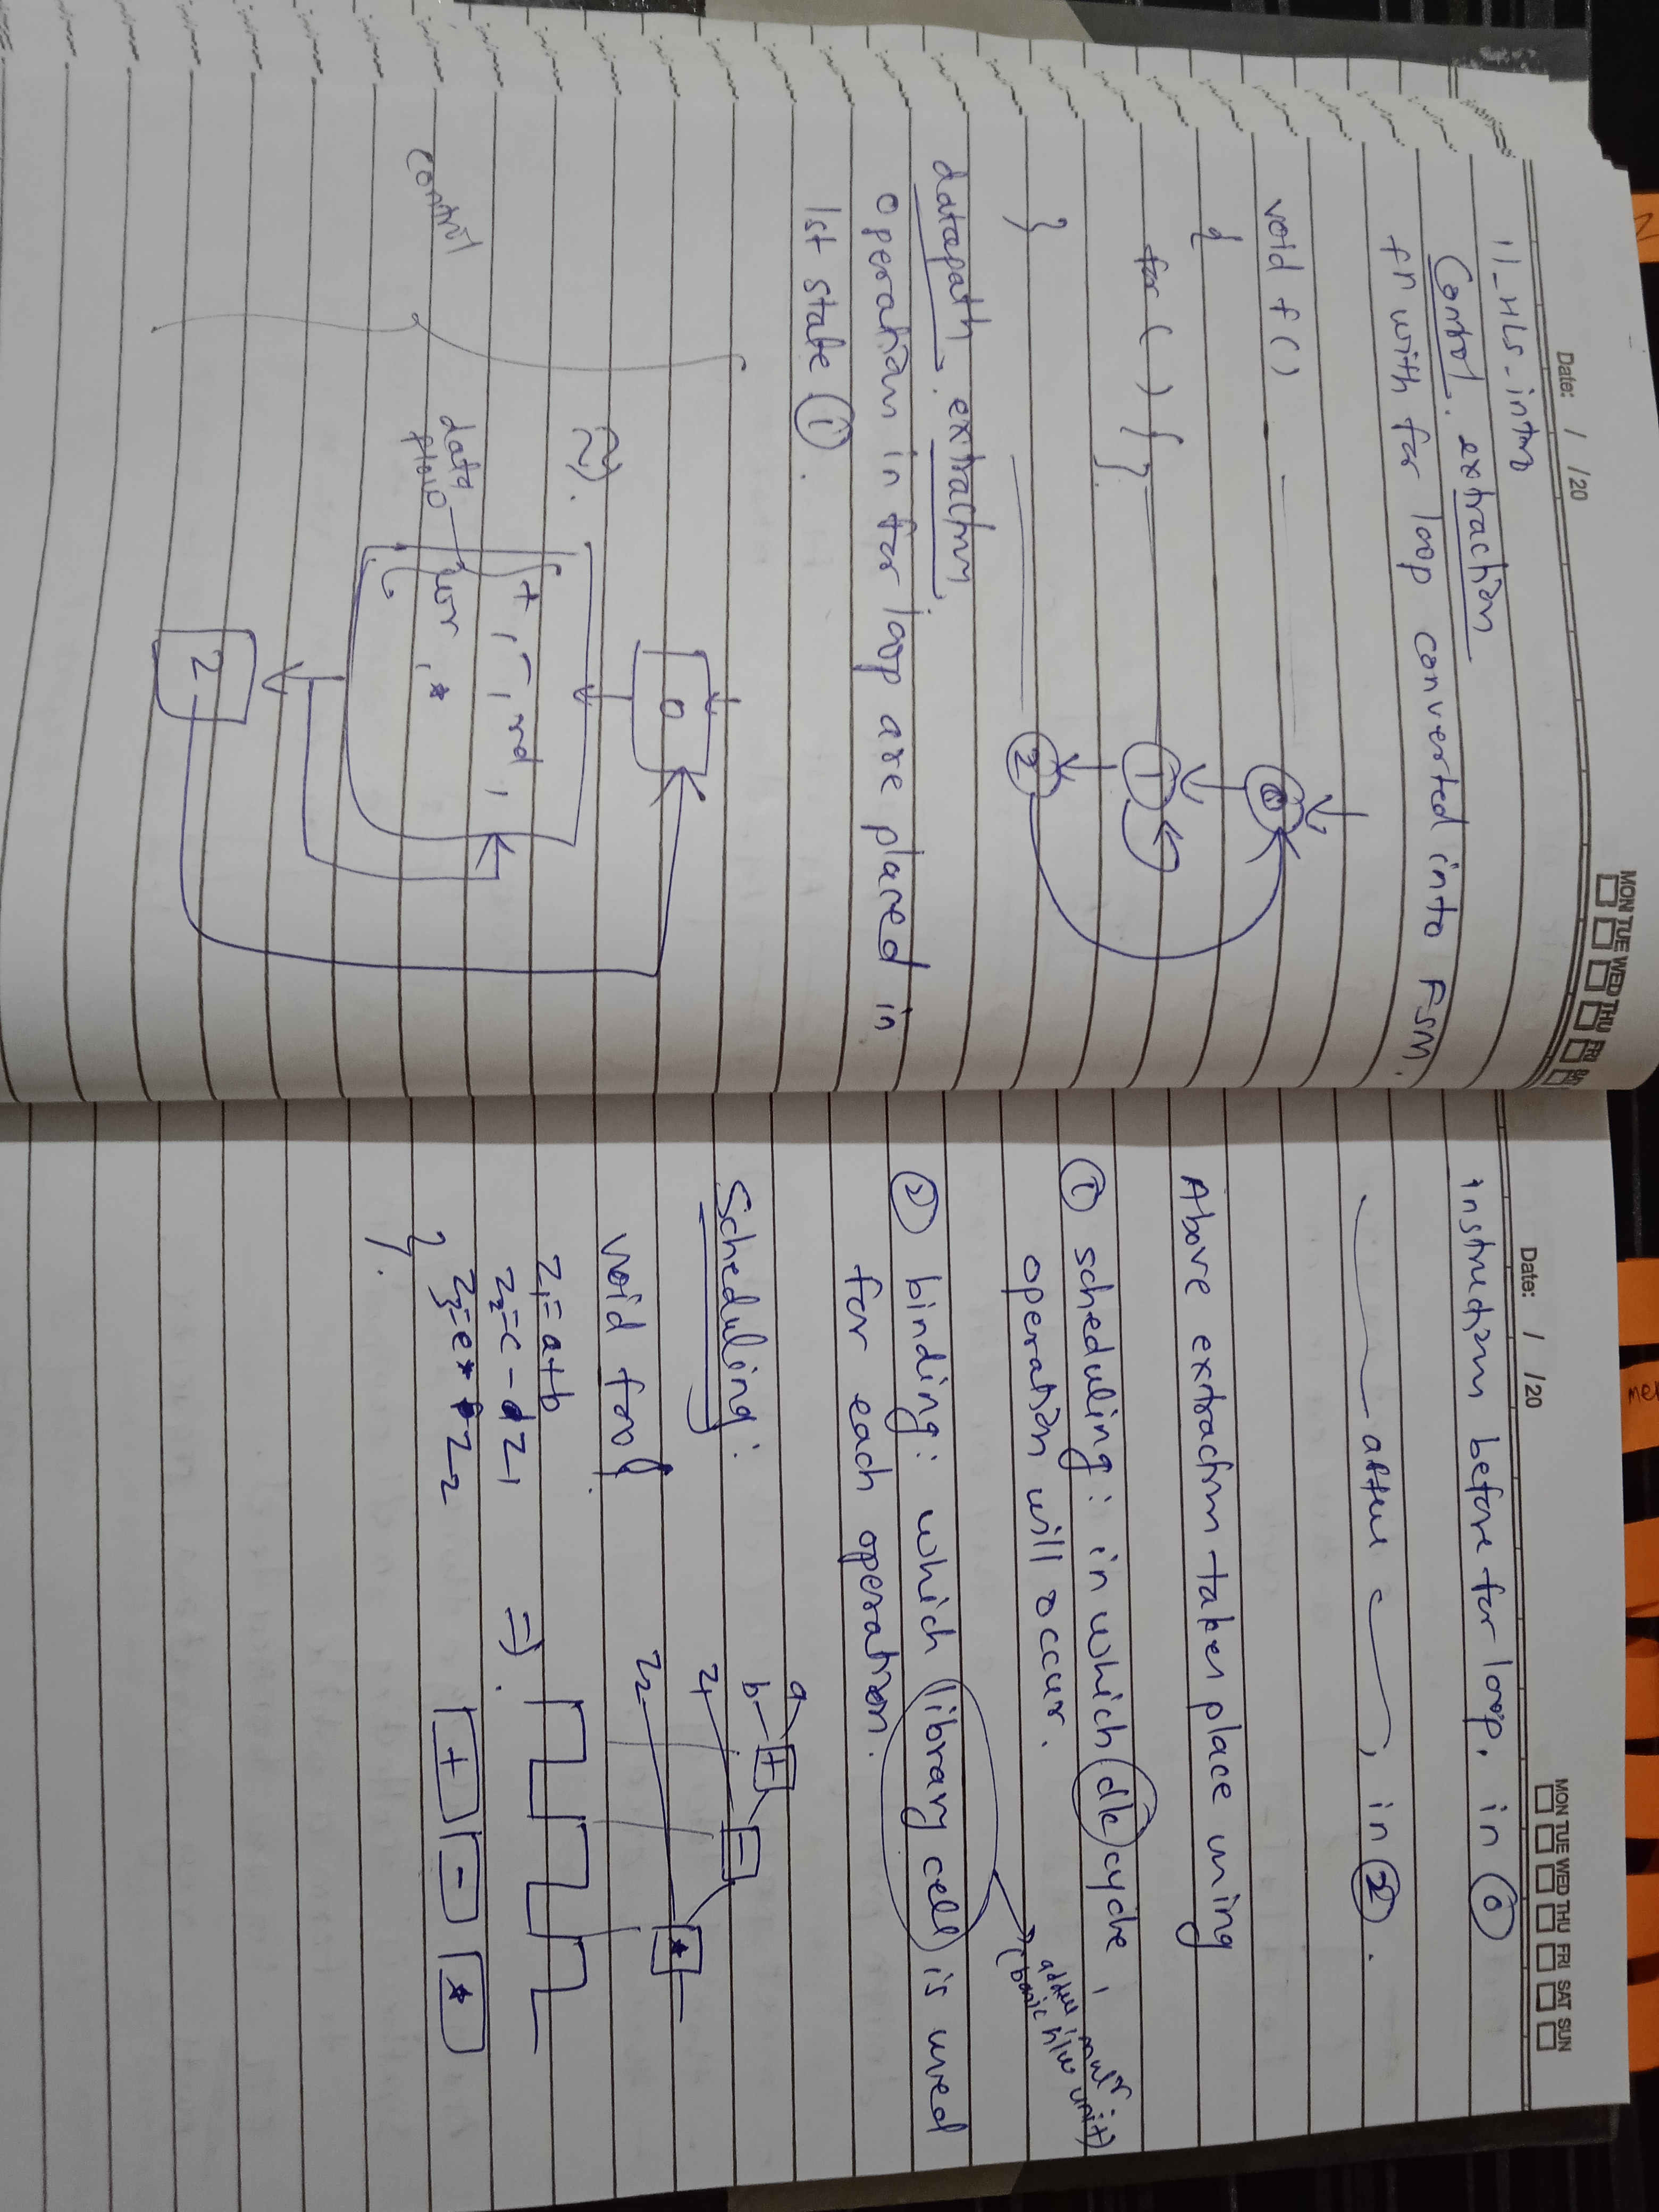 Date: / /20
MON TUE WED THU FRI
11_HLS_intro
Control. extraction
fn with for loop converted into FSM.
void f()
{
for ( ) {
}
}
0
1
2
datapath extraction
operation in for loop are placed in
1st state 1.
≈).
control
data flow
0
+, -, rd,
wr, *
2
Date: / /20
MON TUE WED THU FRI SAT SUN
instruction before for loop, in 0
after , in 2.
Above extraction takes place using
1 scheduling: in which clk cycle,
operation will occur.
2 binding: which library cell is used
for each operation.
(basic h/w unit)
Scheduling:
void foo {
z1 = a+b
z2 = c - z1
z3 = e * z2
}.
⇒.
a
b
+
z1
-
z2
*
+ - *